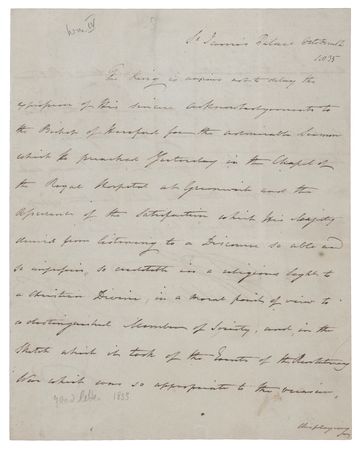 Wm IV
St James's Palace October 12
1835
The King is anxious not to delay the
expression of His sincere acknowledgements to
the Bishop of Hereford for the admirable Sermon
which He preached Yesterday in the Chapel of
the Royal Hospital at Greenwich and the
assurance of the Satisfaction which His Majesty
derived from listening to a Discourse so able and
so impressive, so creditable in a religious light to
a Christian Divine, in a moral point of view to
a distinguished Member of Society, and in the
Sketch which it took of the Events of the Revolutionary
War which was so appropriate to the occasion.
1835